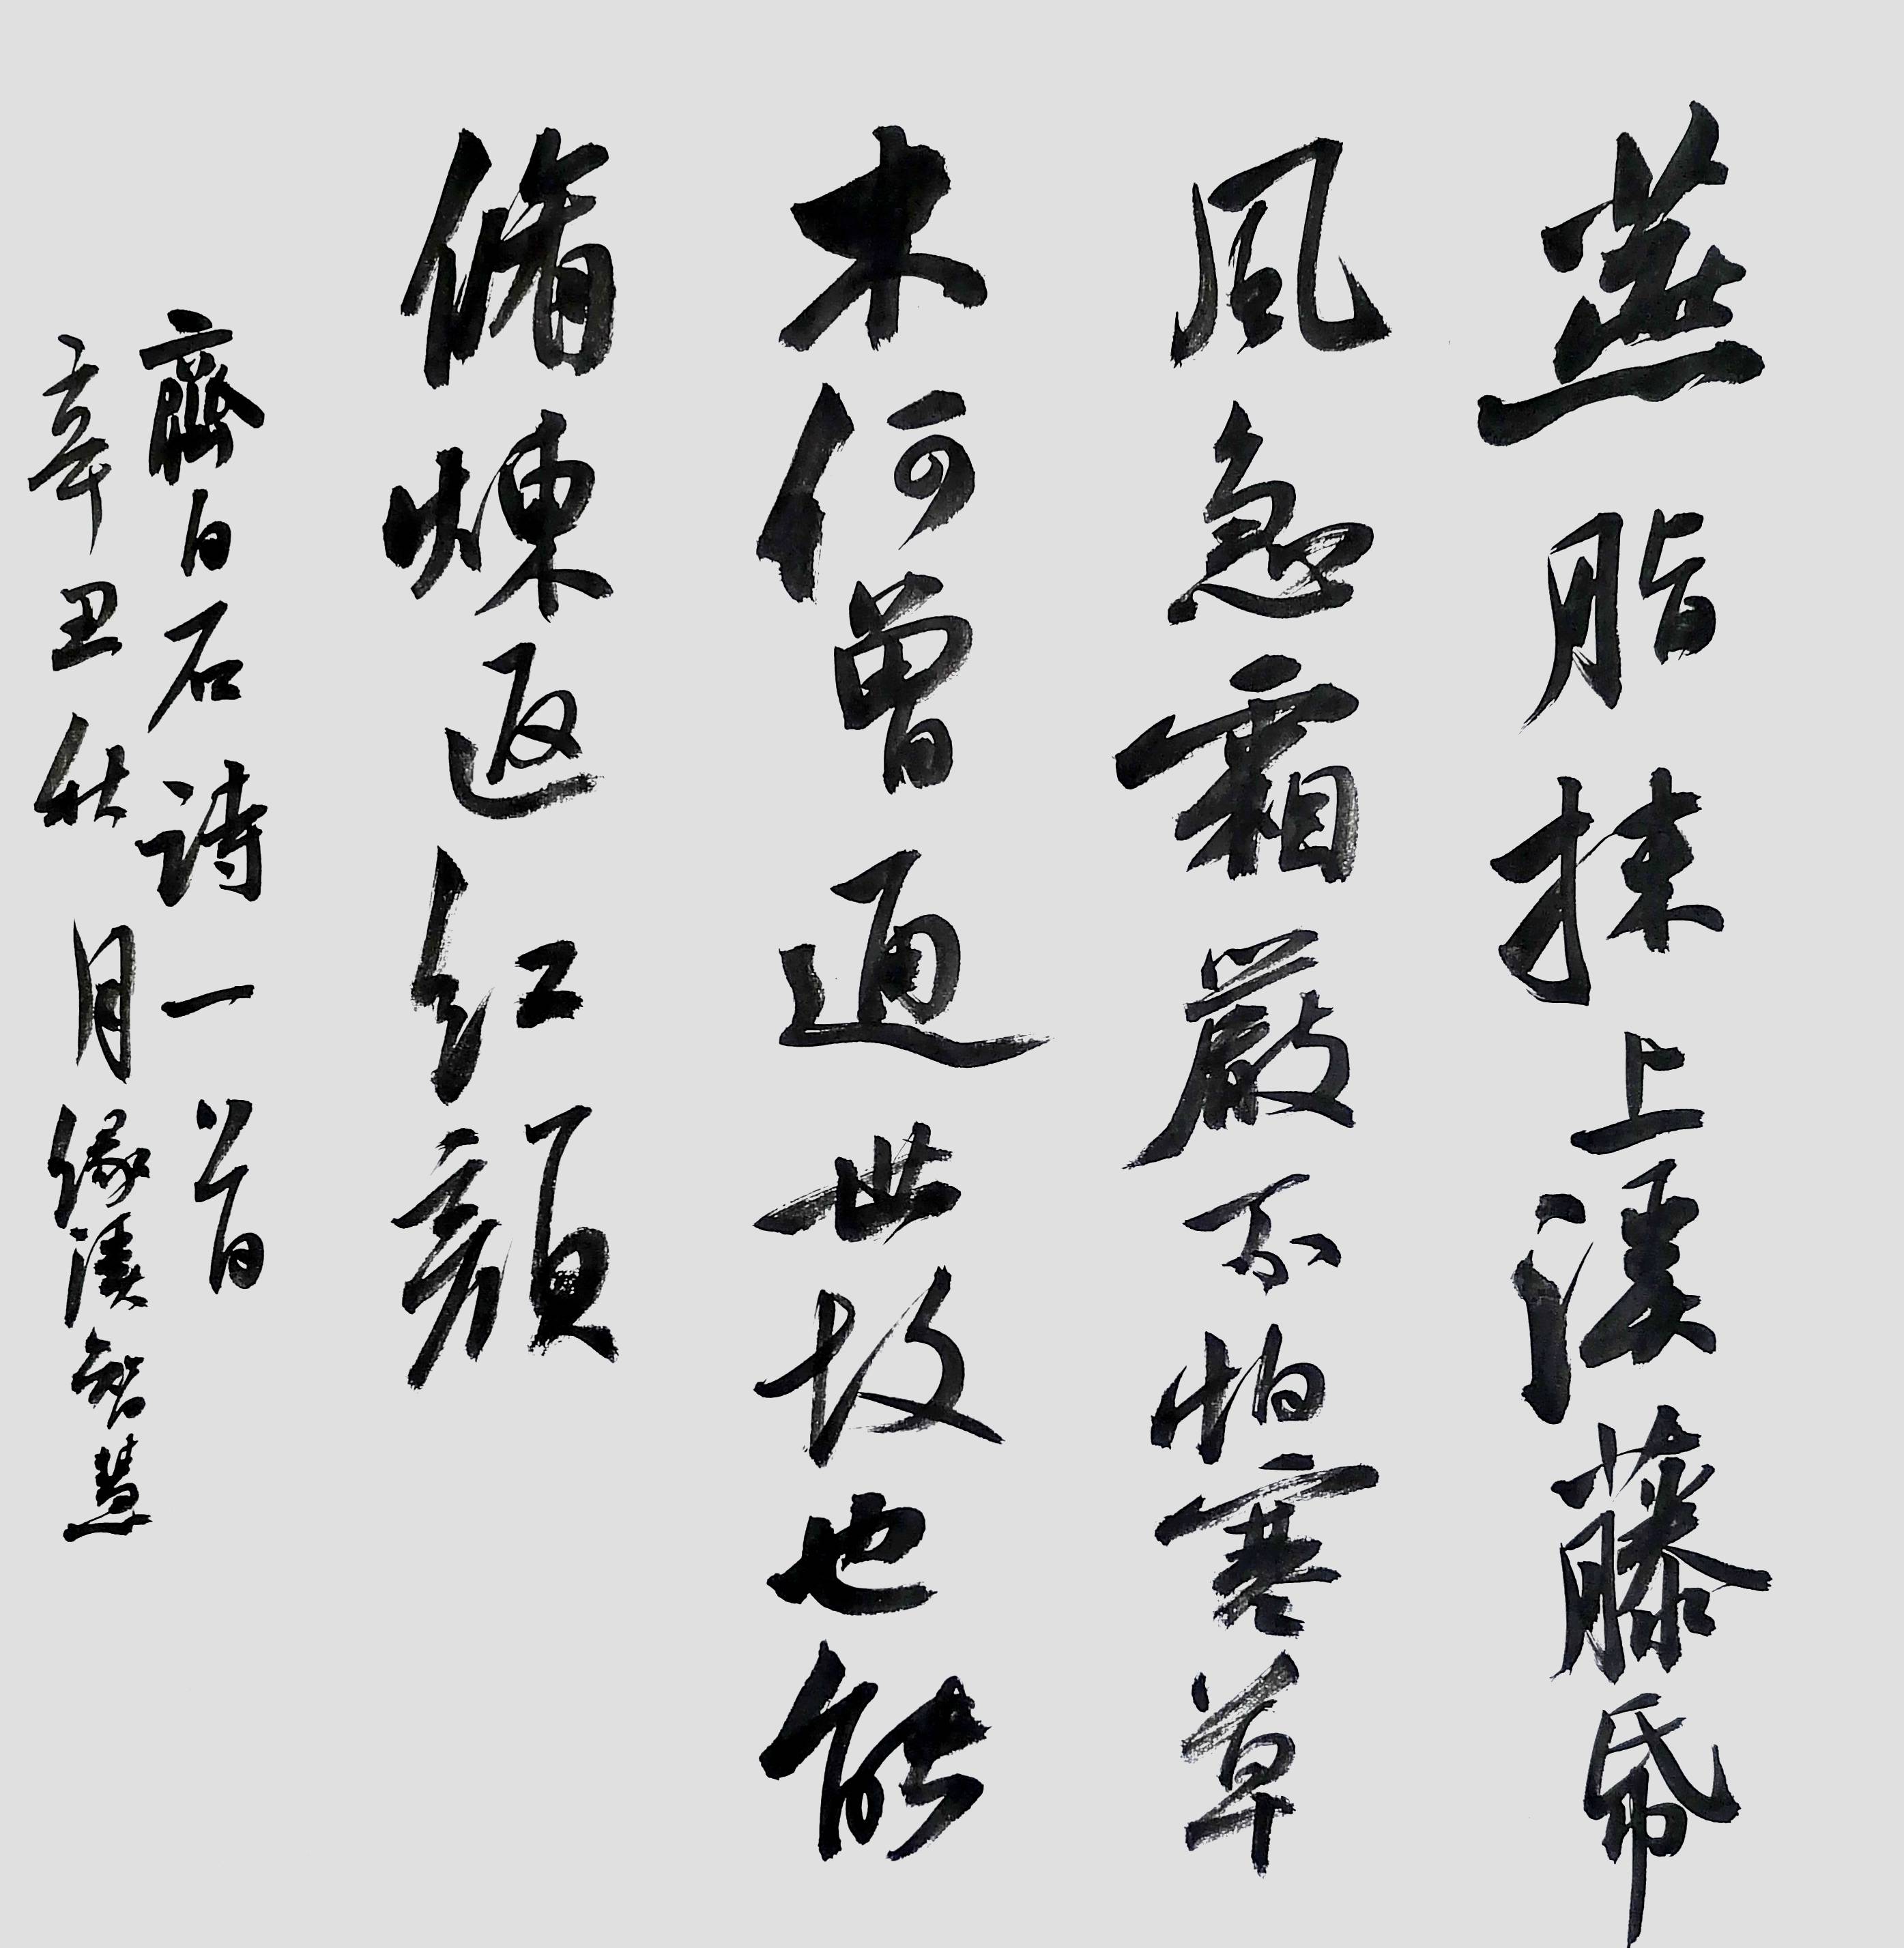 燕脂抹上溪藤帋
風急霜嚴不怕寒草
木何曾通世故也能
脩煉返紅顏
齊白石詩一首
辛丑秋月緣溪智慧